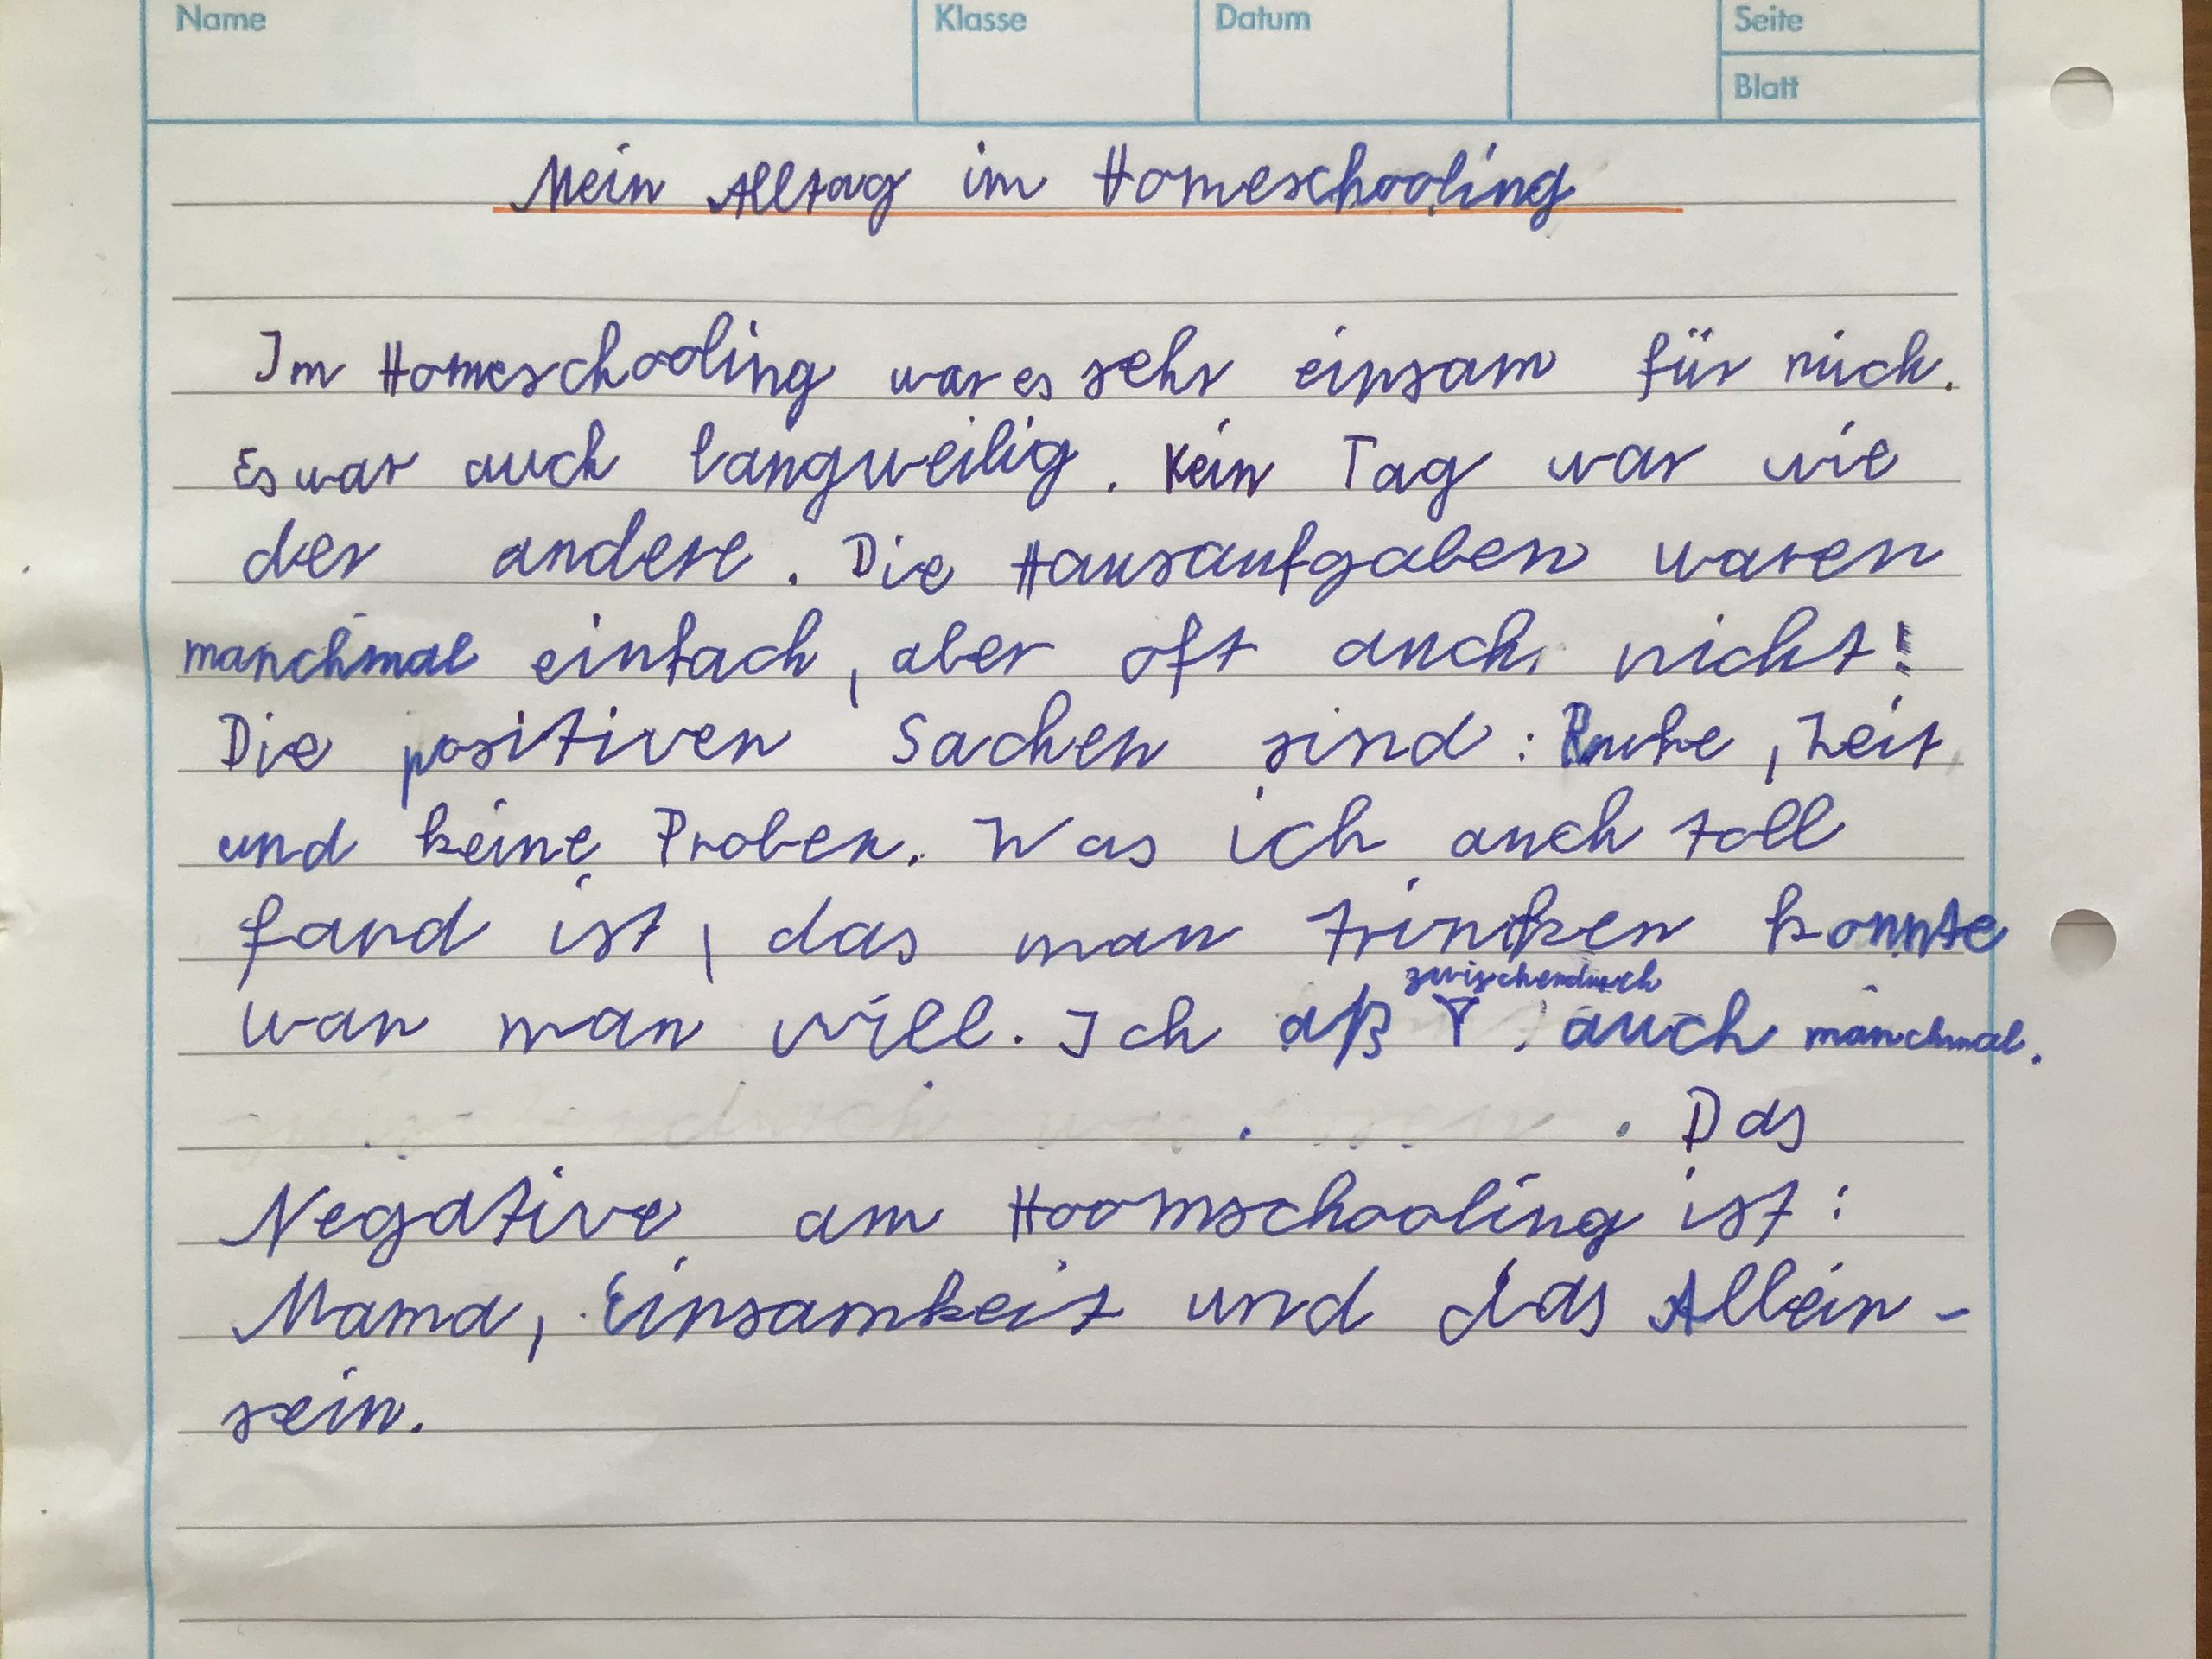 Name Klasse Datum Seite
Blatt
Mein Alltag im Homeschooling
Im Homeschooling war es sehr einsam für mich.
Es war auch langweilig. Kein Tag war wie
der andere. Die Hausaufgaben waren
manchmal einfach, aber oft auch nicht!
Die positiven Sachen sind: Ruhe, Zeit
und keine Proben. Was ich auch toll
fand ist, das man trinken konnte
zwischendurch
wan man will. Ich aß auch manchmal.
. Das
Negative am Hoomschooling ist:
Mama, Einsamkeit und das Allein-
sein.